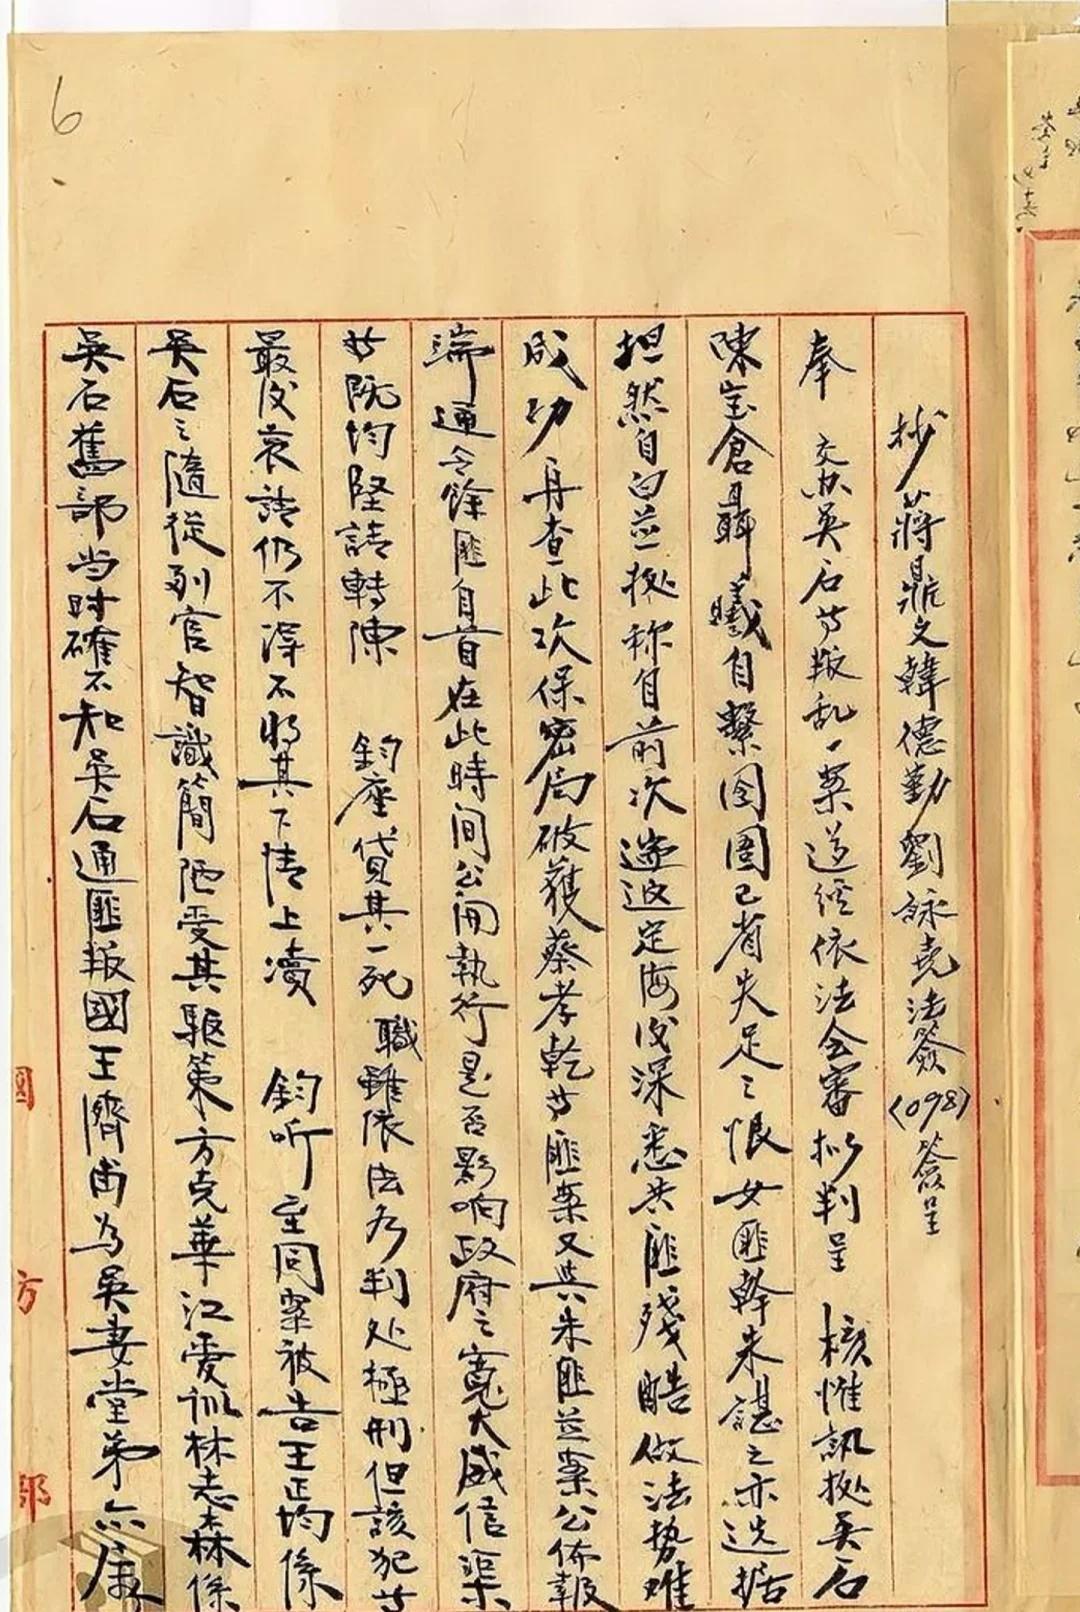 6
抄蔣鼎文韓德勤劉詠堯法簽(098)簽呈
奉 交办吳石等叛乱一案遵經依法会審拟判呈 核惟訊拠吳石
陳宝倉聶曦自繫囹圄已省失足之恨女匪幹朱諶之亦迭据
担然自白並拠称自前次逃返定海後深悉共匪殘酷做法势难
成功再查此次保密局破获蔡孝乾等匪案又與朱匪並案公佈報
端通令餘匪自首在此時间公開執行是否影响政府之寬大威信渠
等既均堅請轉陳 鈞座貸其一死職雖依法為判处極刑但該犯等
最後哀請仍不得不将其下情上凟 鈞听至同案被告王正均係
吳石之隨從列官智識簡陋受其駆策方克華江愛訓林志森係
吳石舊部当时確不知吳石通匪叛國王濟甫為吳妻堂弟亦屬
國
方
部